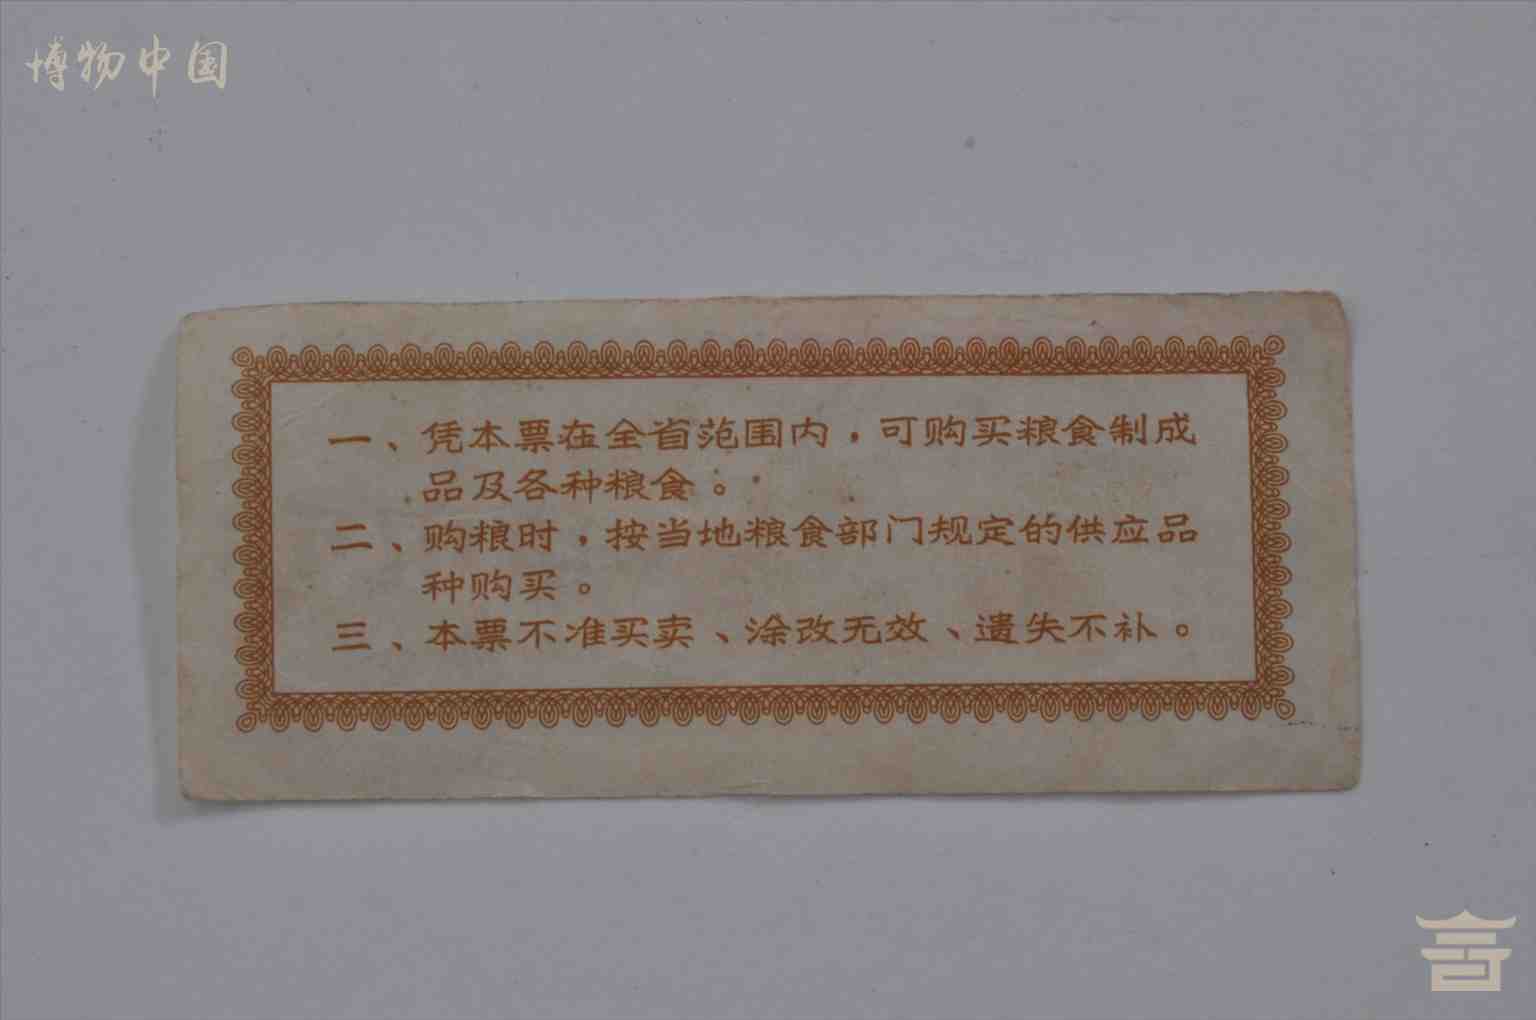 博物中国
一、凭本票在全省范围内，可购买粮食制成
品及各种粮食。
二、购粮时，按当地粮食部门规定的供应品
种购买。
三、本票不准买卖、涂改无效、遗失不补。